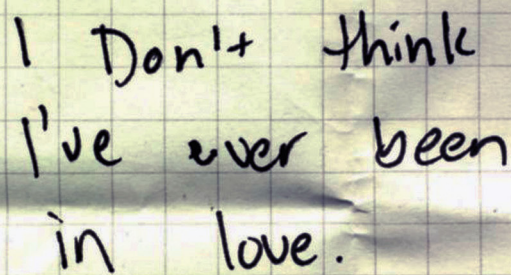 I Don't think
I've ever been
in love.